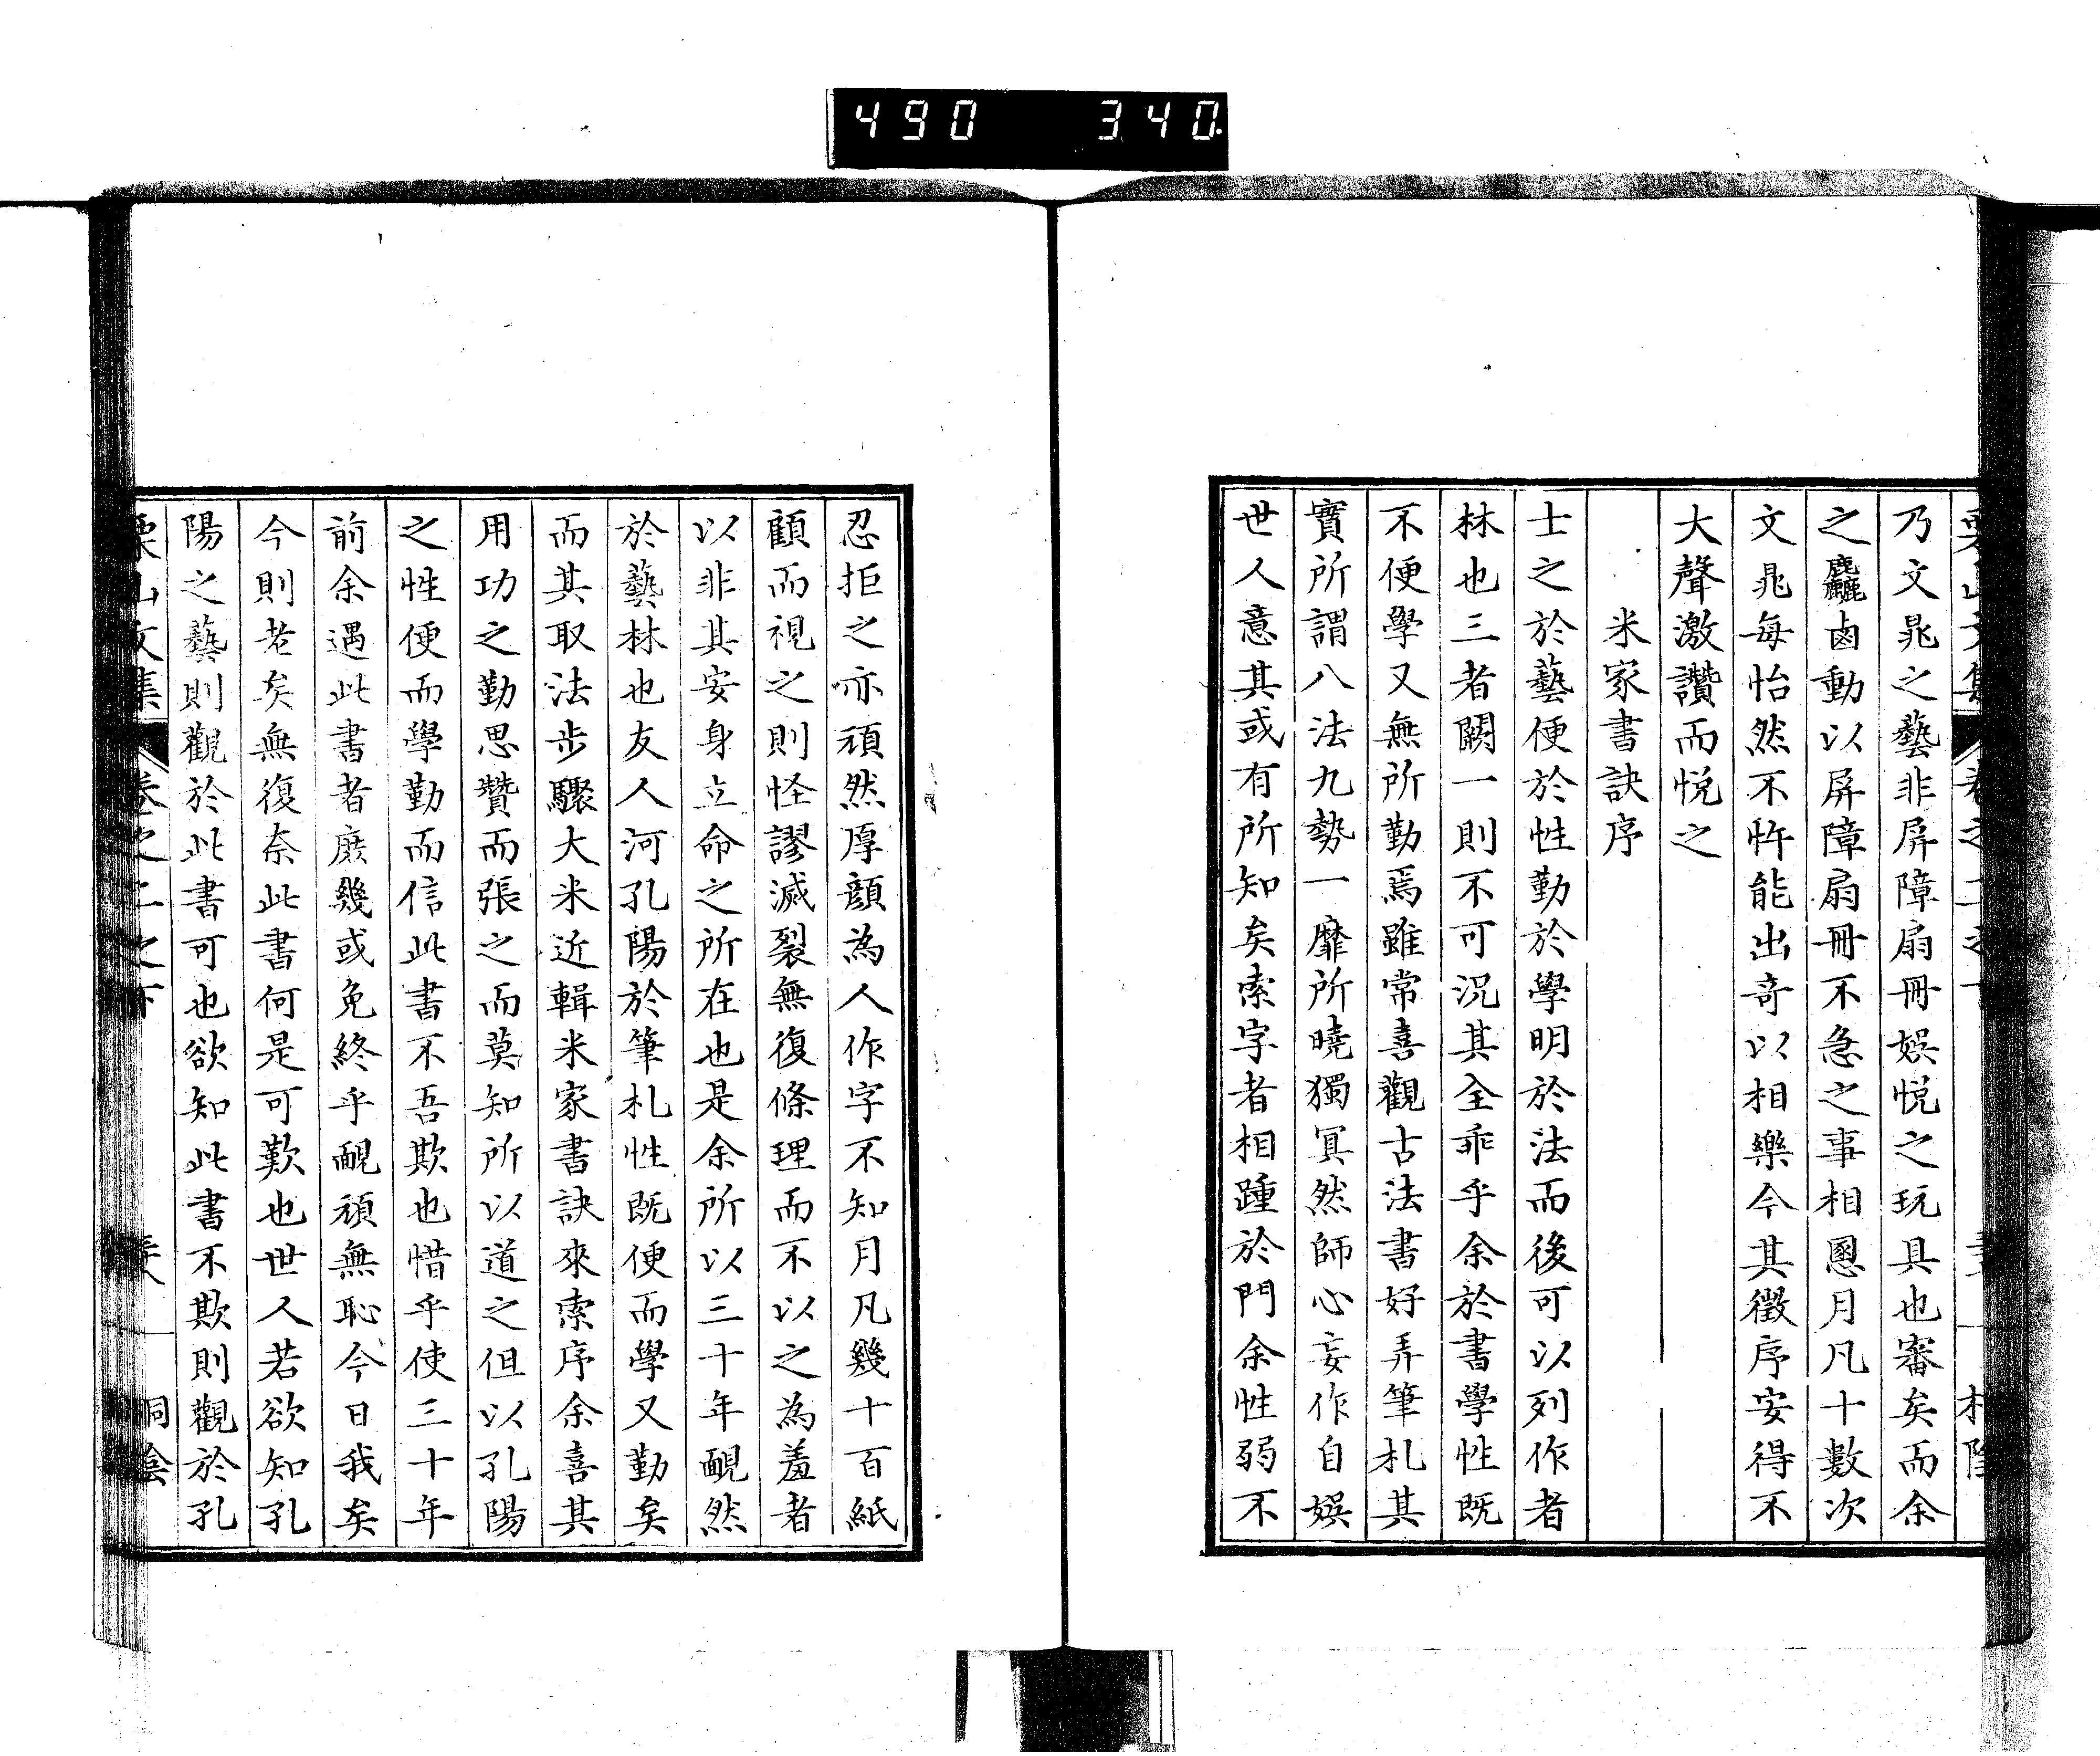 490 340.
乃文晁之藝非屏障扇冊娯悦之玩具也審矣而余
之麤鹵動以屏障扇冊不急之事相慁月凡十數次
文晁每怡然不忤能出奇以相樂今其徵序安得不
大聲激讚而悦之
米家書訣序
士之於藝便於性勤於學明於法而後可以列作者
林也三者闕一則不可況其全乖乎余於書學性既
不便學又無所勤焉雖常喜觀古法書好弄筆札其
實所謂八法九勢一靡所曉獨冥然師心妄作自娯
世人意其或有所知矣索字者相踵於門余性弱不
忍拒之亦頑然厚顔為人作字不知月凡幾十百紙
顧而視之則怪謬滅裂無復條理而不以之為羞者
以非其安身立命之所在也是余所以三十年靦然
於藝林也友人河孔陽於筆札性既便而學又勤矣
而其取法步驟大米近輯米家書訣來索序余喜其
用功之勤思贊而張之而莫知所以道之但以孔陽
之性便而學勤而信此書不吾欺也惜乎使三十年
前余遇此書者庶幾或免終乎靦頑無恥今日我矣
今則老矣無復奈此書何是可歎也世人若欲知孔
陽之藝則觀於此書可也欲知此書不欺則觀於孔
栗山文集 卷之二之下